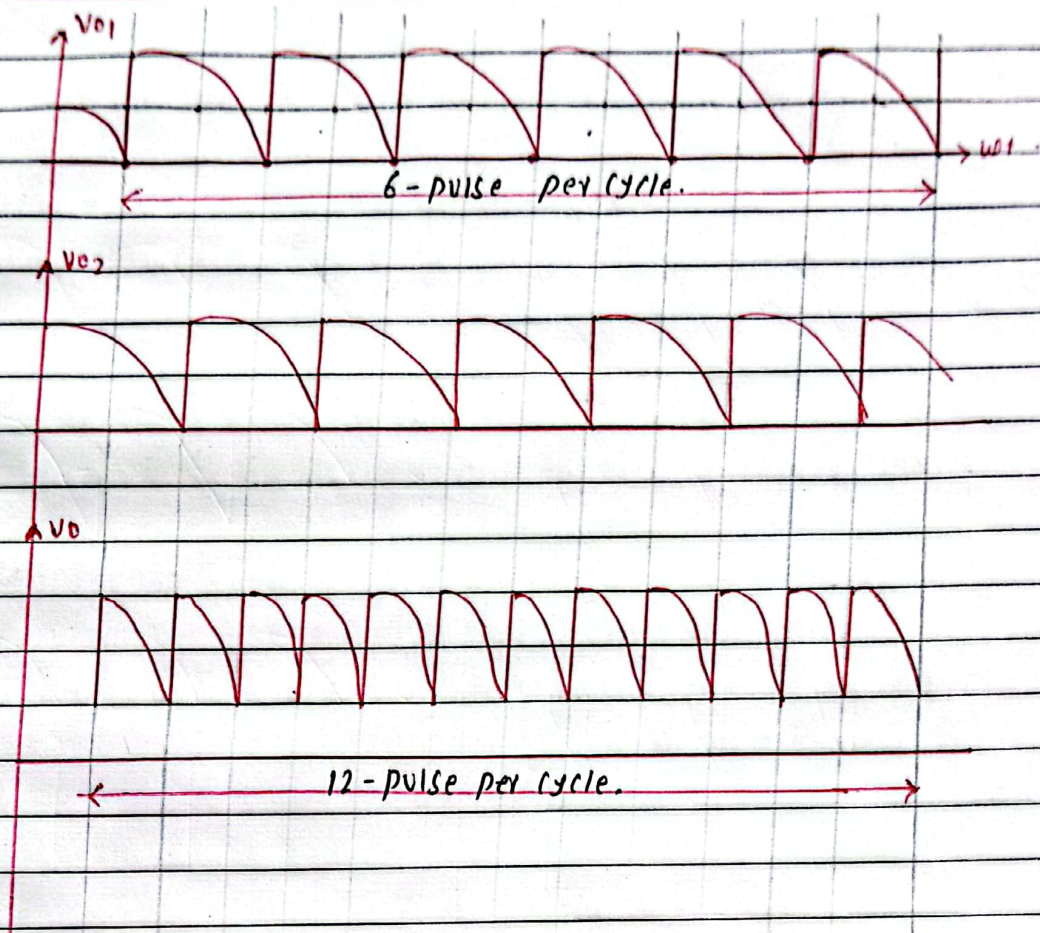 Vo1
ωt
6-pulse per cycle.
Vo2
Vo
12-pulse per cycle.